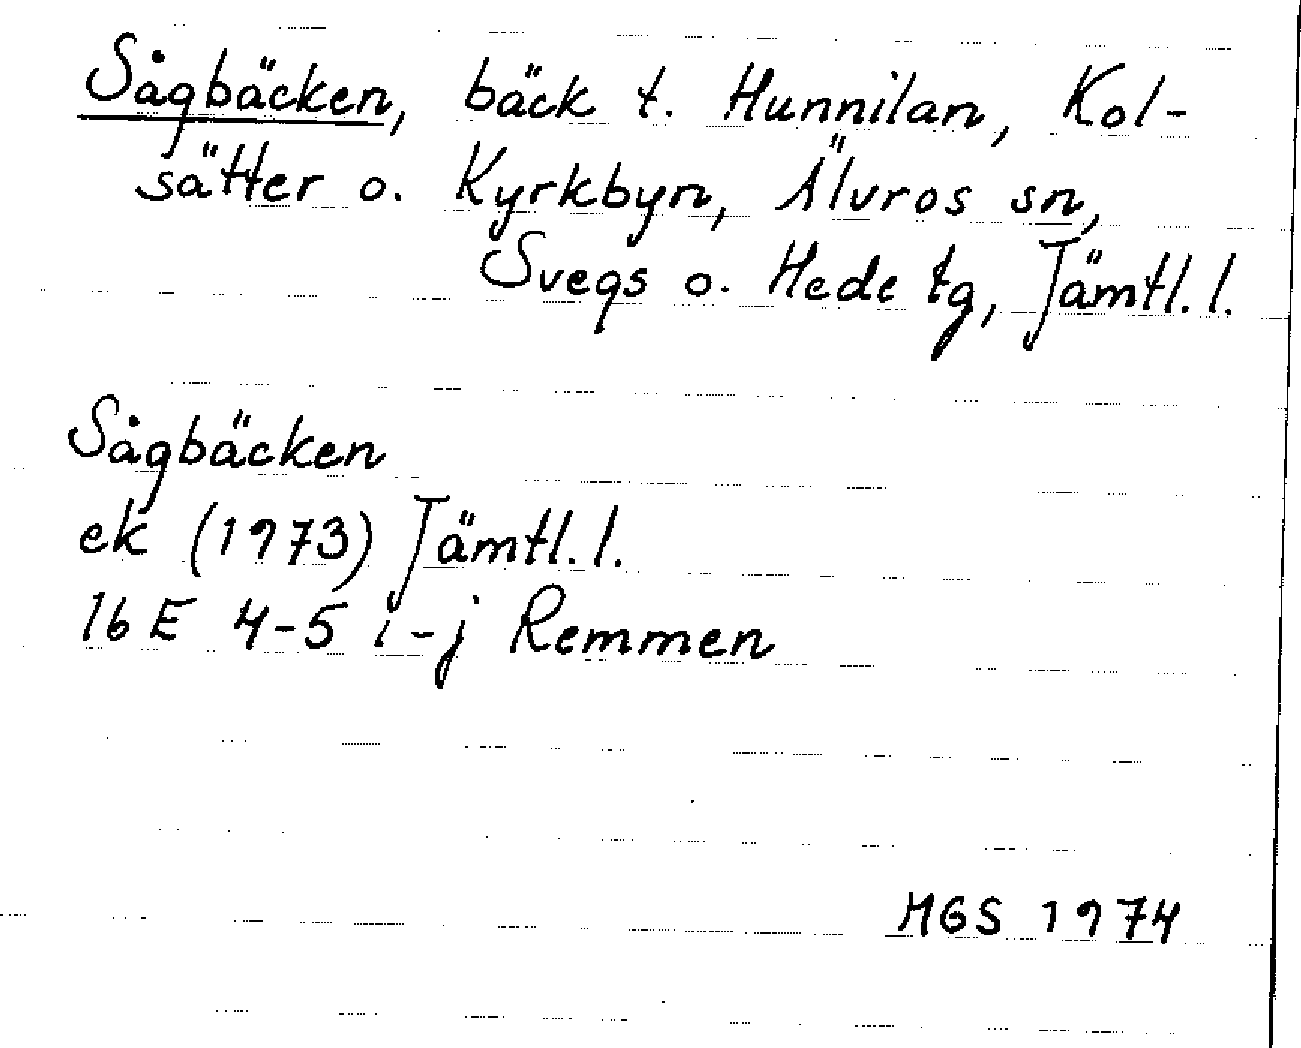 Sågbäcken, bäck t. Hunnilan, Kol-
sätter o. Kyrkbyn, Älvros sn,
Svegs o. Hede tg, Jämtl. l.
Sågbäcken
ek (1973) Jämtl. l.
16 E 4-5 i-j Remmen
MGS 1974